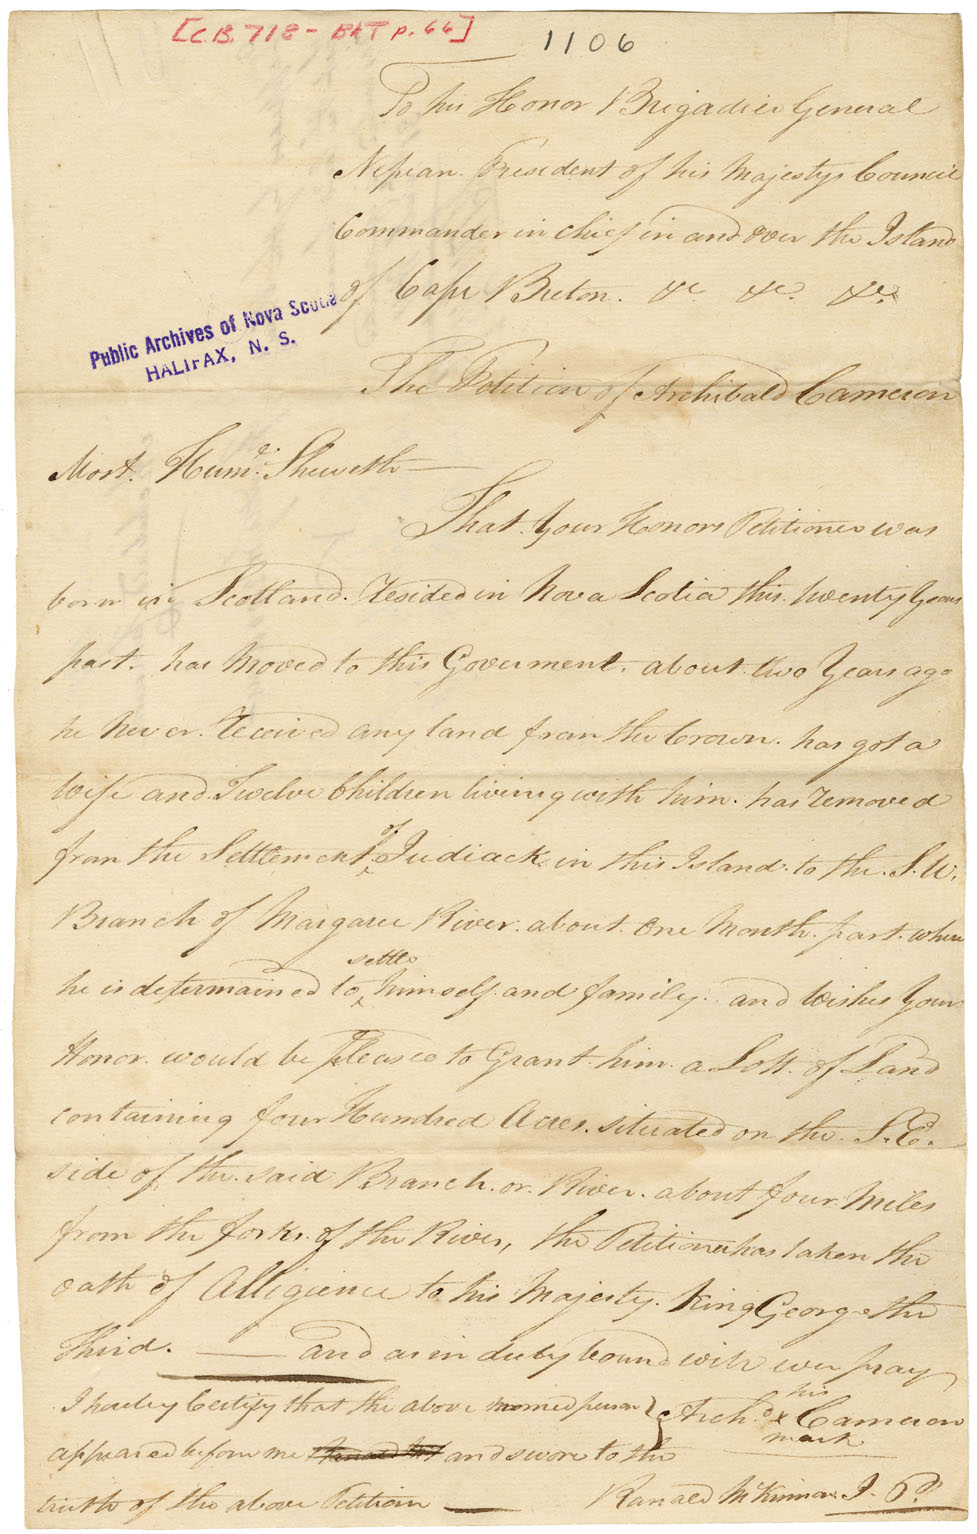 [C.B. 718 - BKT p. 66]
1106
To his Honor Brigadier General
Nepean. President of his Majestys Council
Commander in chief in and over the Island
of Cape Breton. &c &c. &c.
Public Archives of Nova Scotia
HALIFAX, N. S.
The Petition of Archibald Cameron
Most. Humle. Sheweth —
That. Your Honors Petitioner was
born in Scotland. resided in Nova Scotia this twenty Years
past. has moved to this Goverment. about two Years ago
he Never. Received any land from the Crown. has got a
Wife and Twelve Children living with him. has removed
from the Settlement of Judiack in this Island. to the. S.W.
Branch of Margaree River. about. One Month. past. where
he is determained to settle himself. and family. and Wishes Your
Honor. would be pleased to Grant. him. a Lott. of Land
containing four Hundred Acres. situated on the. S.E.
side of the. said Branch. or. River. about four Miles
from the forks. of the River, the Petitioner has taken the
oath of Alligience to his Majesty. King George the
third. — and as in duty bound will ever pray
I hereby Certify that the above named person } Archd. his x Cameron
appeared before me and swore to the mark
truth of the above Petition — Ranald McKinnon J. P.